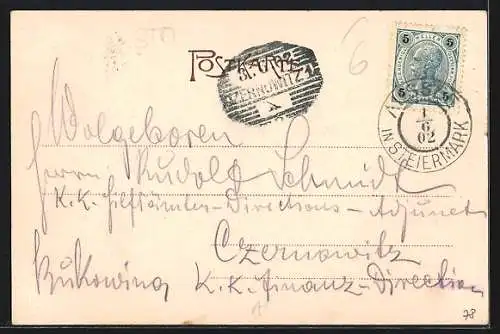 6
POSTKARTE
CZERNOWITZ 1
5 HELLER 5
5 5
1
6
02
IN STEIERMARK
Wolgeboren
Herrn Rudolf Schmidt
K. K. Hilfsämter-Directions-Adjunct
Czernowitz
Bukowina K. K. Finanz-Direction
78